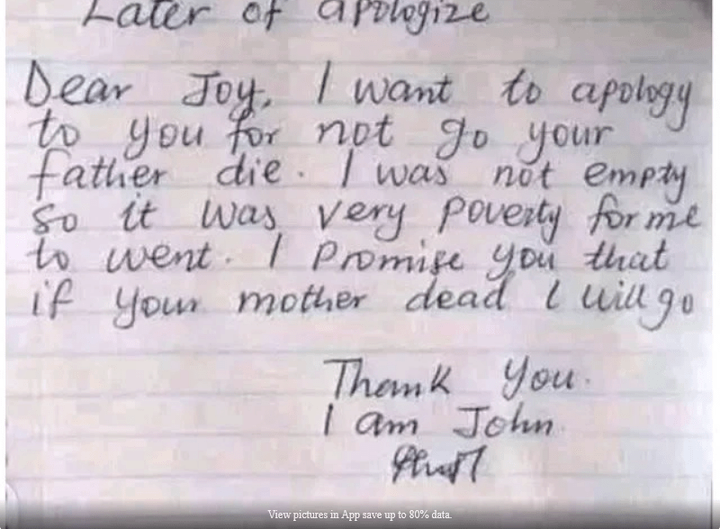 Later of apologize
Dear Joy, I want to apology
to you for not go your
father die. I was not empty
so it was very poverty for me
to went. I promise you that
if your mother dead I will go
Thank you.
I am John
View pictures in App save up to 80% data.